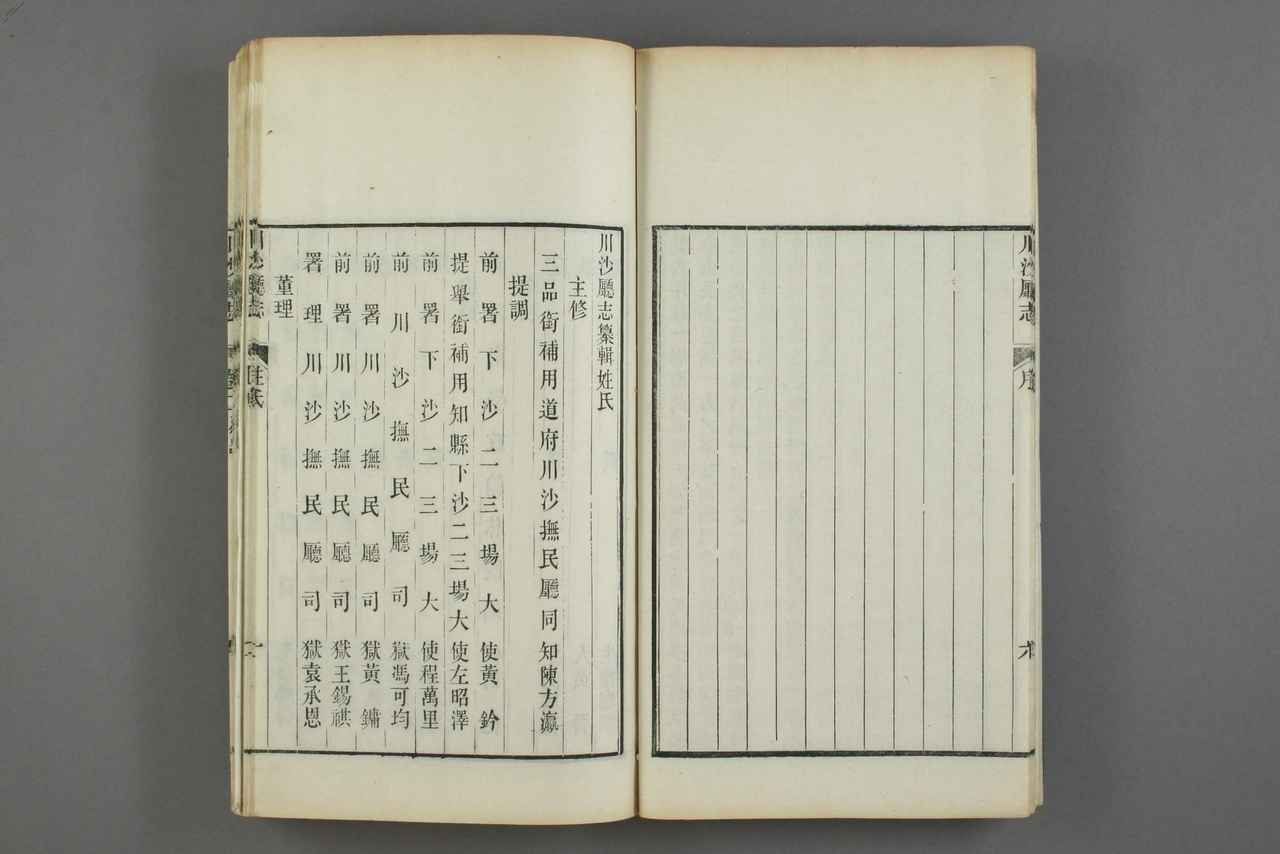 川沙廳志
序
六
川沙廳志纂輯姓氏
主修
三品銜補用道府川沙撫民廳同知陳方瀛
提調
前署下沙二三場大使黃鈐
提舉銜補用知縣下沙二三場大使左昭澤
前署下沙二三場大使程萬里
前川沙撫民廳司獄馮可均
前署川沙撫民廳司獄黃鏞
前署川沙撫民廳司獄王錫祺
署理川沙撫民廳司獄袁承恩
董理
川沙廳志
姓氏
一